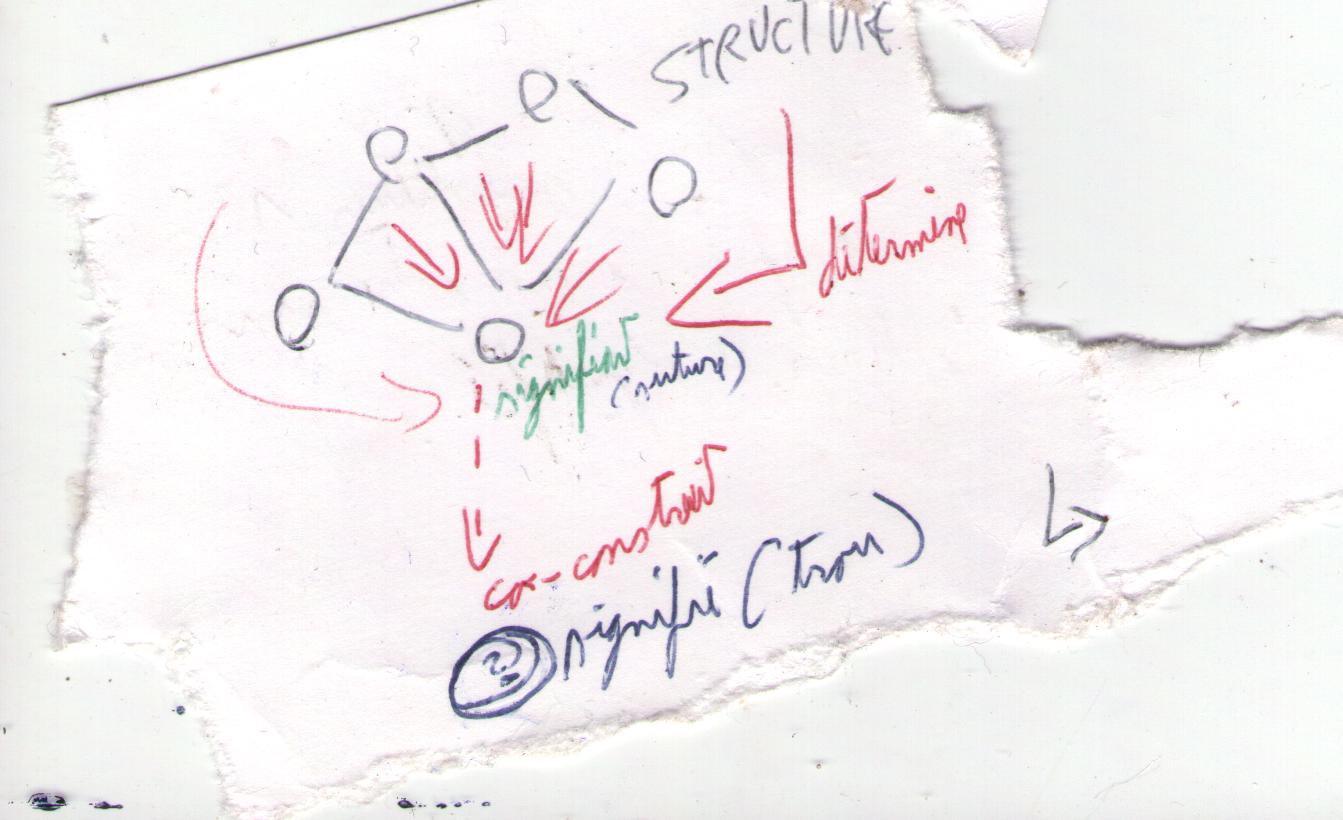 STRUCTURE
détermine
signifiant
(suture)
co-construit
? signifié (trou)